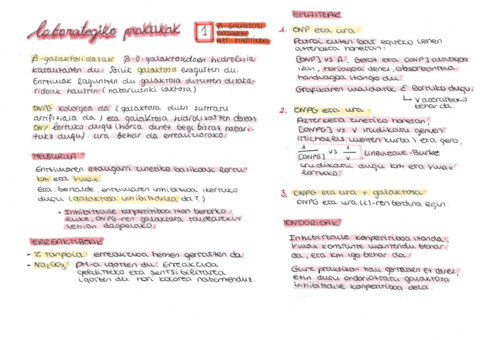 laborategiko praktikak
1
β-galaktosidasak β-D-galaktosidoen hidrolisia
katalizatzen du. Soilik galaktosa ezagutzen du.
Entzimak ezagutzen du galaktosa duten disaka-
ridoak hausten (naturalki laktosa)
ONPG kolorgea da (galaktosa duen sustratu
artifiziala da) eta galaktosa hidrolizatzen denean
ONP lortuko dugu (horia denez begi bistaz nabari-
tuko dugu). Ura behar da erreakziorako.
HELBURUA
Entzimaren ezaugarri zinetiko batzuk lortu
Km eta Vmax
Eta, bestalde, entzimaren inhibizioa ikertuko
dugu (galaktosa inhibitzailea da?)
• Inhibitzaile konpetitiboa izan beharko
luke, ONPG-ren galaktosa
dagoelako
ERREAKTIBOAK
• Z tanpoia: erreakzioa hemen gertatzen da
• Na2CO3: pH-a igotzen du. Erreakzioa
gelditzeko eta sentsibilitatea
igotzen du hori kolorea nabarmenduz
EMAITZAK
1. ONP eta ura
[ONP] vs A. Beraz eta [ONP]
izan, horixkoa denez, absorbantzia
handiagoa izango da.
Grafikaren maldarik ε lortuko dugu
behar da.
2. ONPG eta ura
Azterketa zinetiko honetan:
[ONPG] vs V irudikatu genuen
(Michaelis Menten kurba) eta gero,
1/[ONPG] vs 1/V Lineweaver-Burke
irudikatu dugu Km eta Vmax
lortzeko
3. ONPG eta ura + galaktosa
ONPG eta ura (2)-ren berdina egin.
ONDORIOAK
Inhibitzaile konpetitiboa izanda,
Vmax konstante mantendu behar
da, eta Km igo behar da
Gure praktikan hau gertatzen ez denez,
ezin dugu ondorioztatu galaktosa
inhibitzaile konpetitiboa dela.